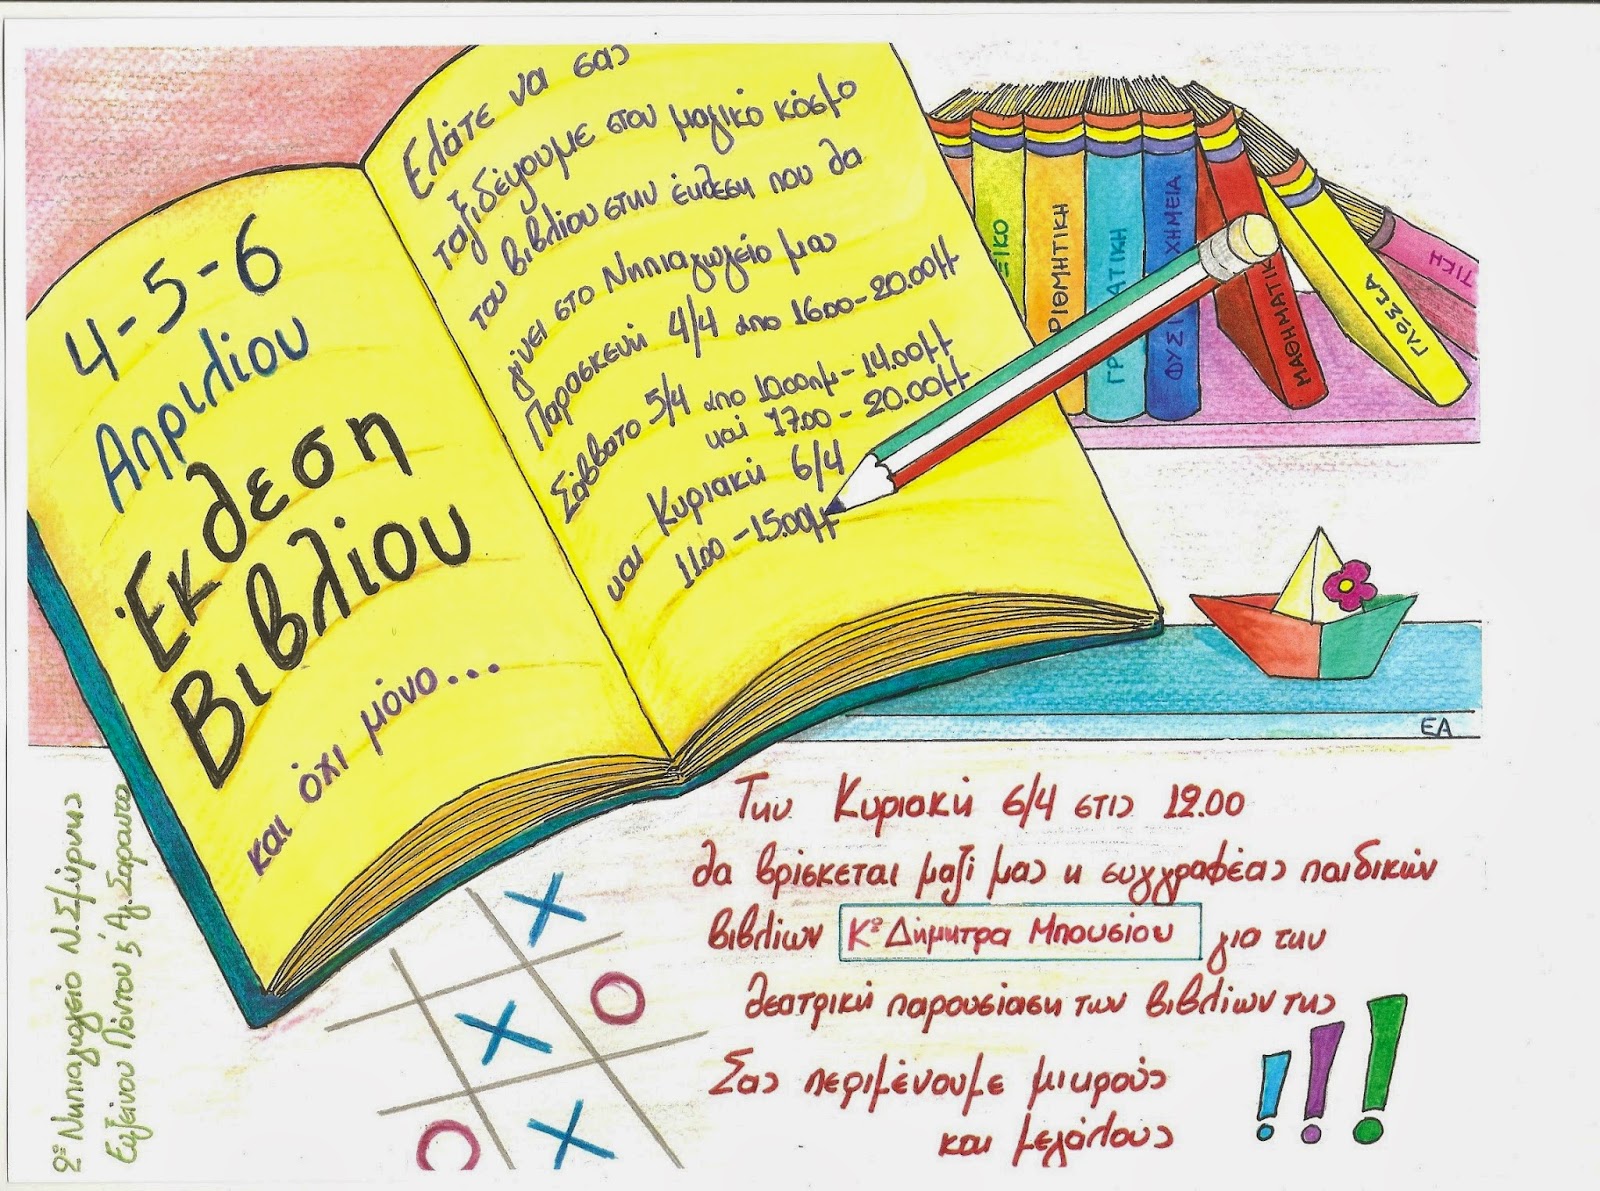 4-5-6
Απριλίου
Έκθεση
Βιβλίου
και όχι μόνο...
Ελάτε να σας
ταξιδέψουμε στον μαγικό κόσμο
του βιβλίου στην έκθεση που θα
γίνει στο Νηπιαγωγείο μας
Παρασκευή 4/4 απο 16.00-20.00μμ
Σάββατο 5/4 απο 10.00πμ-14.00μμ
και 17.00-20.00μμ
και Κυριακή 6/4
11.00-15.00μμ
ΞΙΚΟ
ΡΙΘΜΗΤΙΚΗ
ΓΡ ΑΤΙΚΗ
ΦΥΣΙ ΧΗΜΕΙΑ
ΜΑΘΗΜΑΤΙΚ
ΓΛΩΣΣΑ
ΤΙΚΗ
ΕΑ
Την Κυριακή 6/4 στις 12.00
θα βρίσκεται μαζί μας η συγγραφέας παιδικών
βιβλίων Κα Δήμητρα Μπουσίου για την
θεατρική παρουσίαση των βιβλίων της
Σας περιμένουμε μικρούς
και μεγάλους
!!!
2ο Νηπιαγωγείο Ν.Σμύρνης
Ευξείνου Πόντου 5 Άγ.Σαραντα